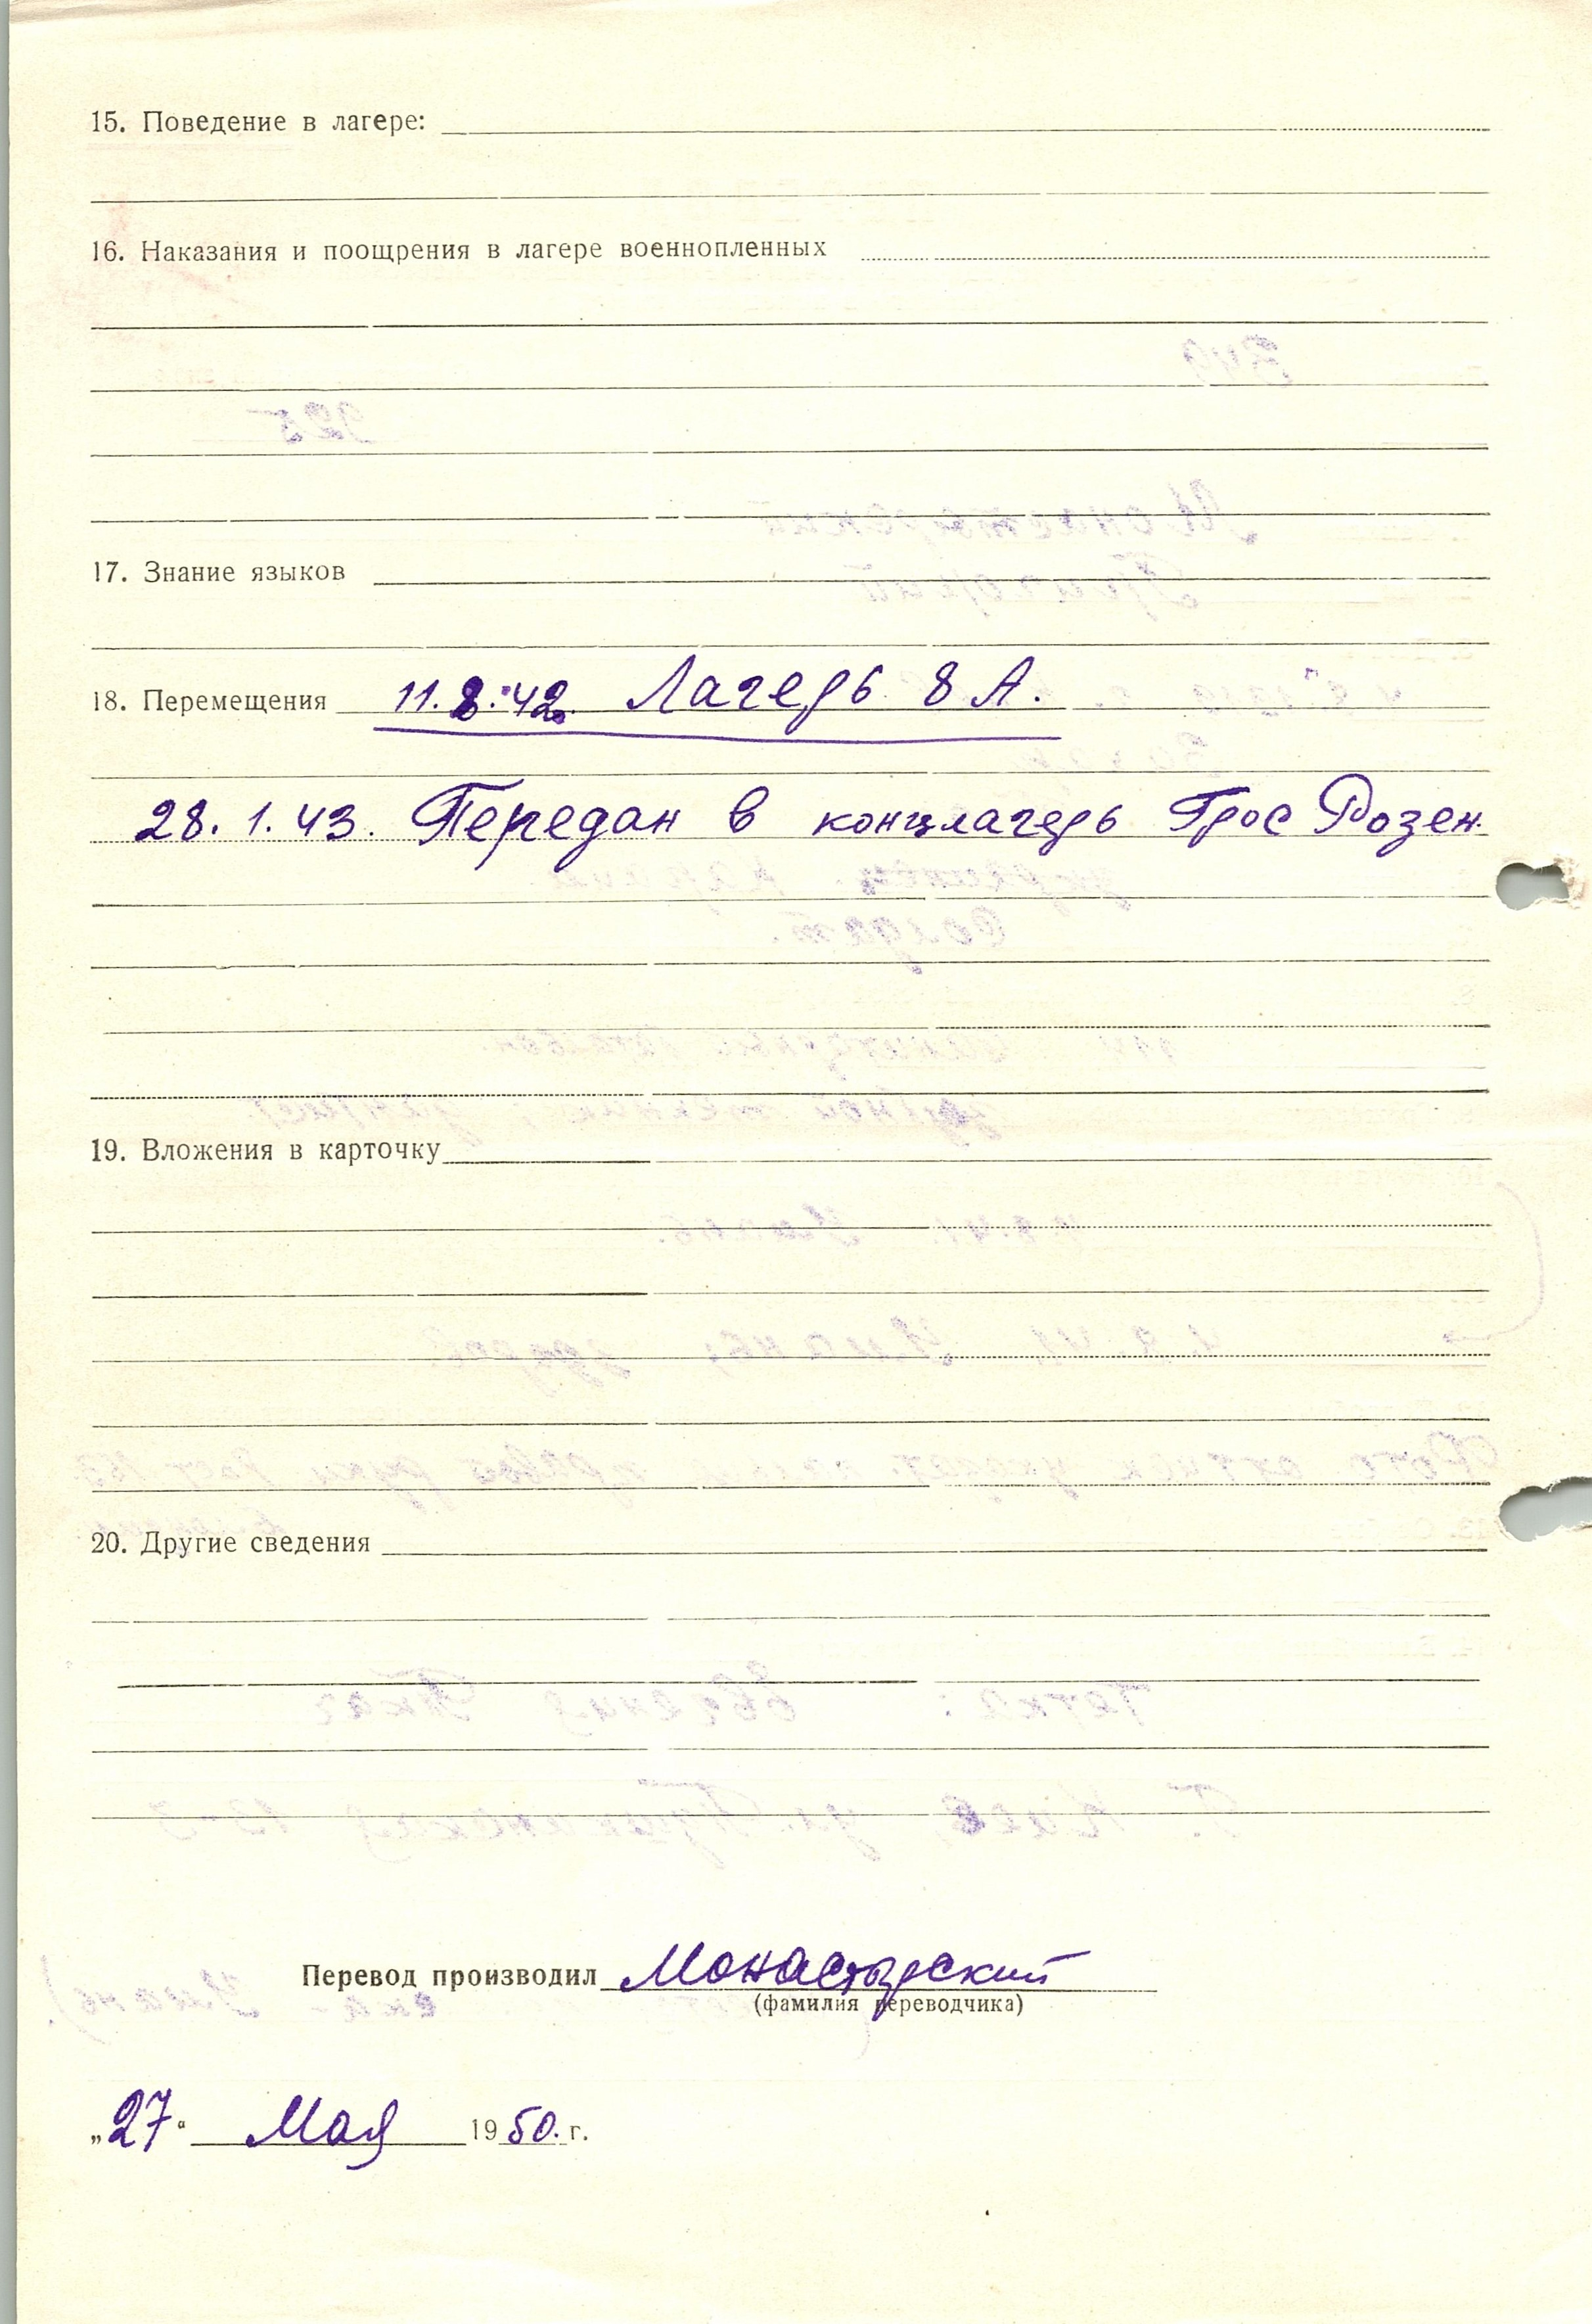 15. Поведение в лагере:
16. Наказания и поощрения в лагере военнопленных
17. Знание языков
18. Перемещения 11.8.42. Лагерь 8 А.
28. 1. 43. Передан в концлагерь Грос Розен.
19. Вложения в карточку
20. Другие сведения
Перевод производил Монастырский
(фамилия переводчика)
„27“ Мая 1950. г.